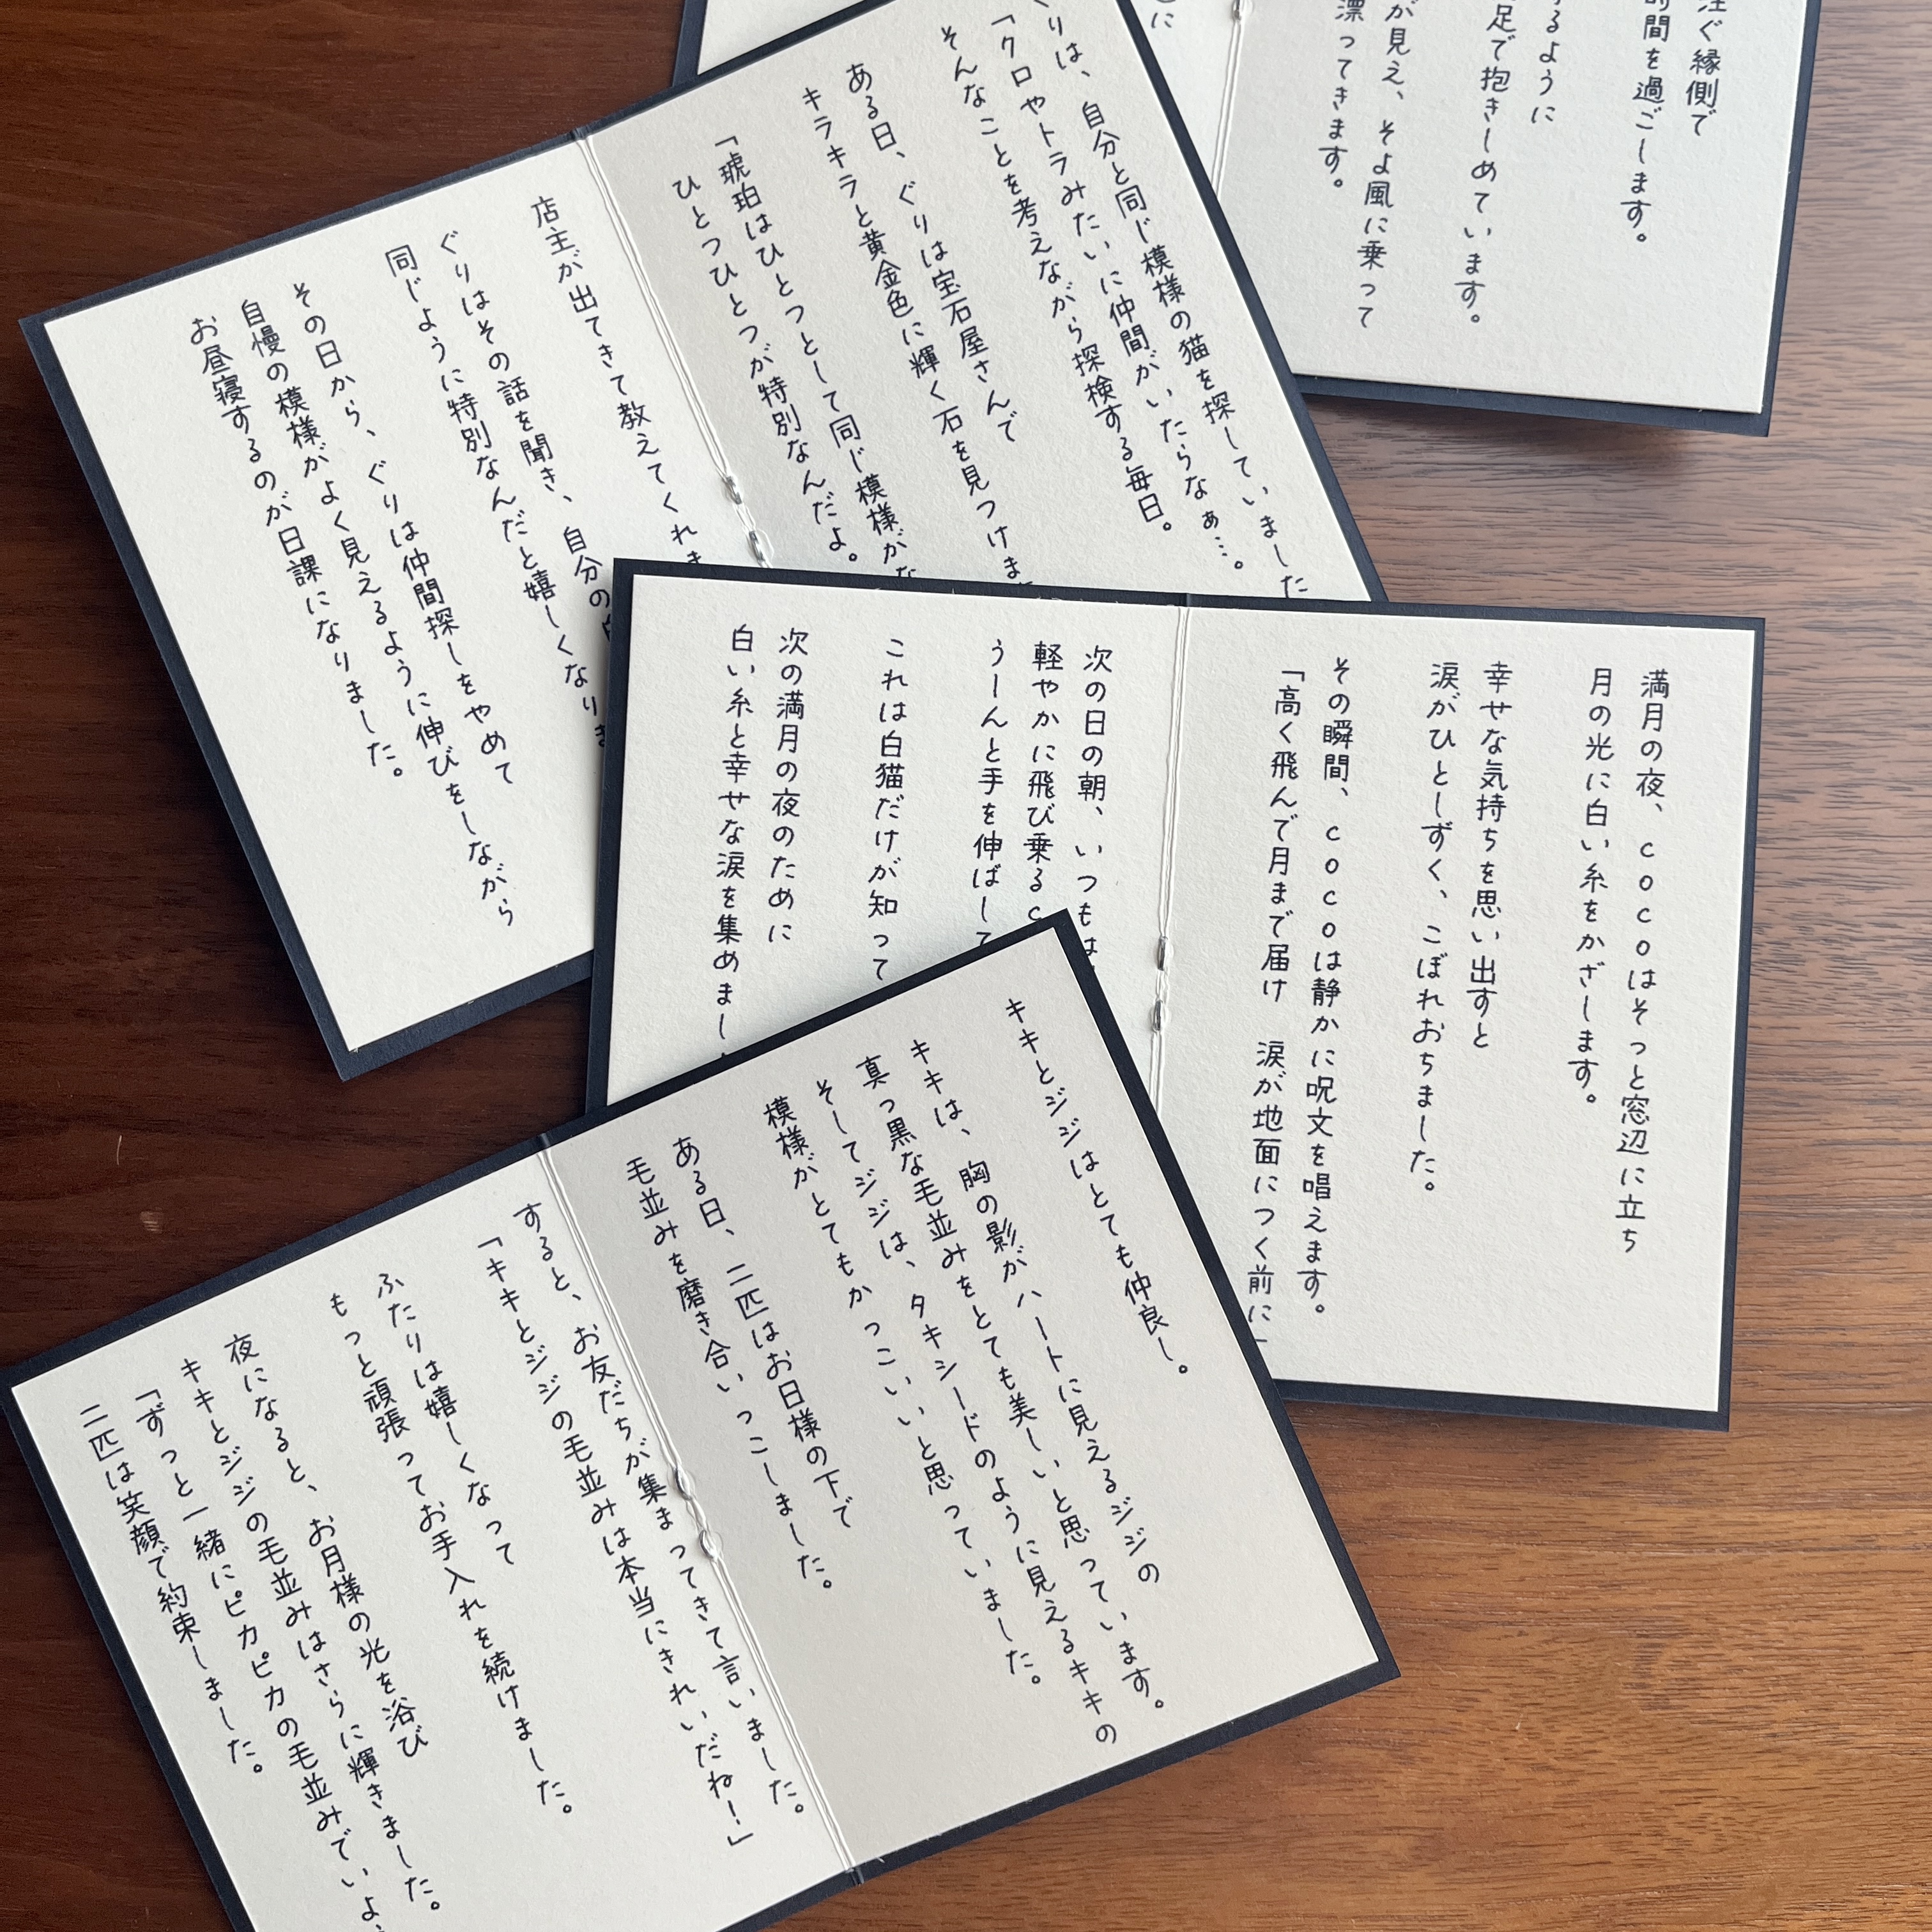 注ぐ縁側で
時間を過ごします。
るように
足で抱きしめています。
が見え、そよ風に乗って
漂ってきます。
に
ぐりは、自分と同じ模様の猫を探していました
「クロやトラみたいに仲間がいたらなぁ…。
そんなことを考えながら探検する毎日。
ある日、ぐりは宝石屋さんで
キラキラと黄金色に輝く石を見つけま
「琥珀はひとつとして同じ模様がな
ひとつひとつが特別なんだよ。
店主が出てきて教えてくれま
ぐりはその話を聞き、自分の
同じように特別なんだと嬉しくなりま
その日から、ぐりは仲間探しをやめて
自慢の模様がよく見えるように伸びをしながら
お昼寝するのが日課になりました。
満月の夜、cocoはそっと窓辺に立ち
月の光に白い糸をかざします。
幸せな気持ちを思い出すと
涙がひとしずく、こぼれおちました。
その瞬間、cocoは静かに呪文を唱えます。
「高く飛んで月まで届け 涙が地面につく前に」
次の日の朝、いつもは
軽やかに飛び乗るc
うーんと手を伸ばして
これは白猫だけが知って
次の満月の夜のために
白い糸と幸せな涙を集めまし
キキとジジはとても仲良し。
キキは、胸の影がハートに見えるジジの
真っ黒な毛並みをとても美しいと思っています。
そしてジジは、タキシードのように見えるキキの
模様がとてもかっこいいと思っていました。
ある日、二匹はお日様の下で
毛並みを磨き合いっこしました。
すると、お友だちが集まってきて言いました。
「キキとジジの毛並みは本当にきれいだね！」
ふたりは嬉しくなって
もっと頑張ってお手入れを続けました。
夜になると、お月様の光を浴び
キキとジジの毛並みはさらに輝きました。
「ずっと一緒にピカピカの毛並みでいよ
二匹は笑顔で約束しました。